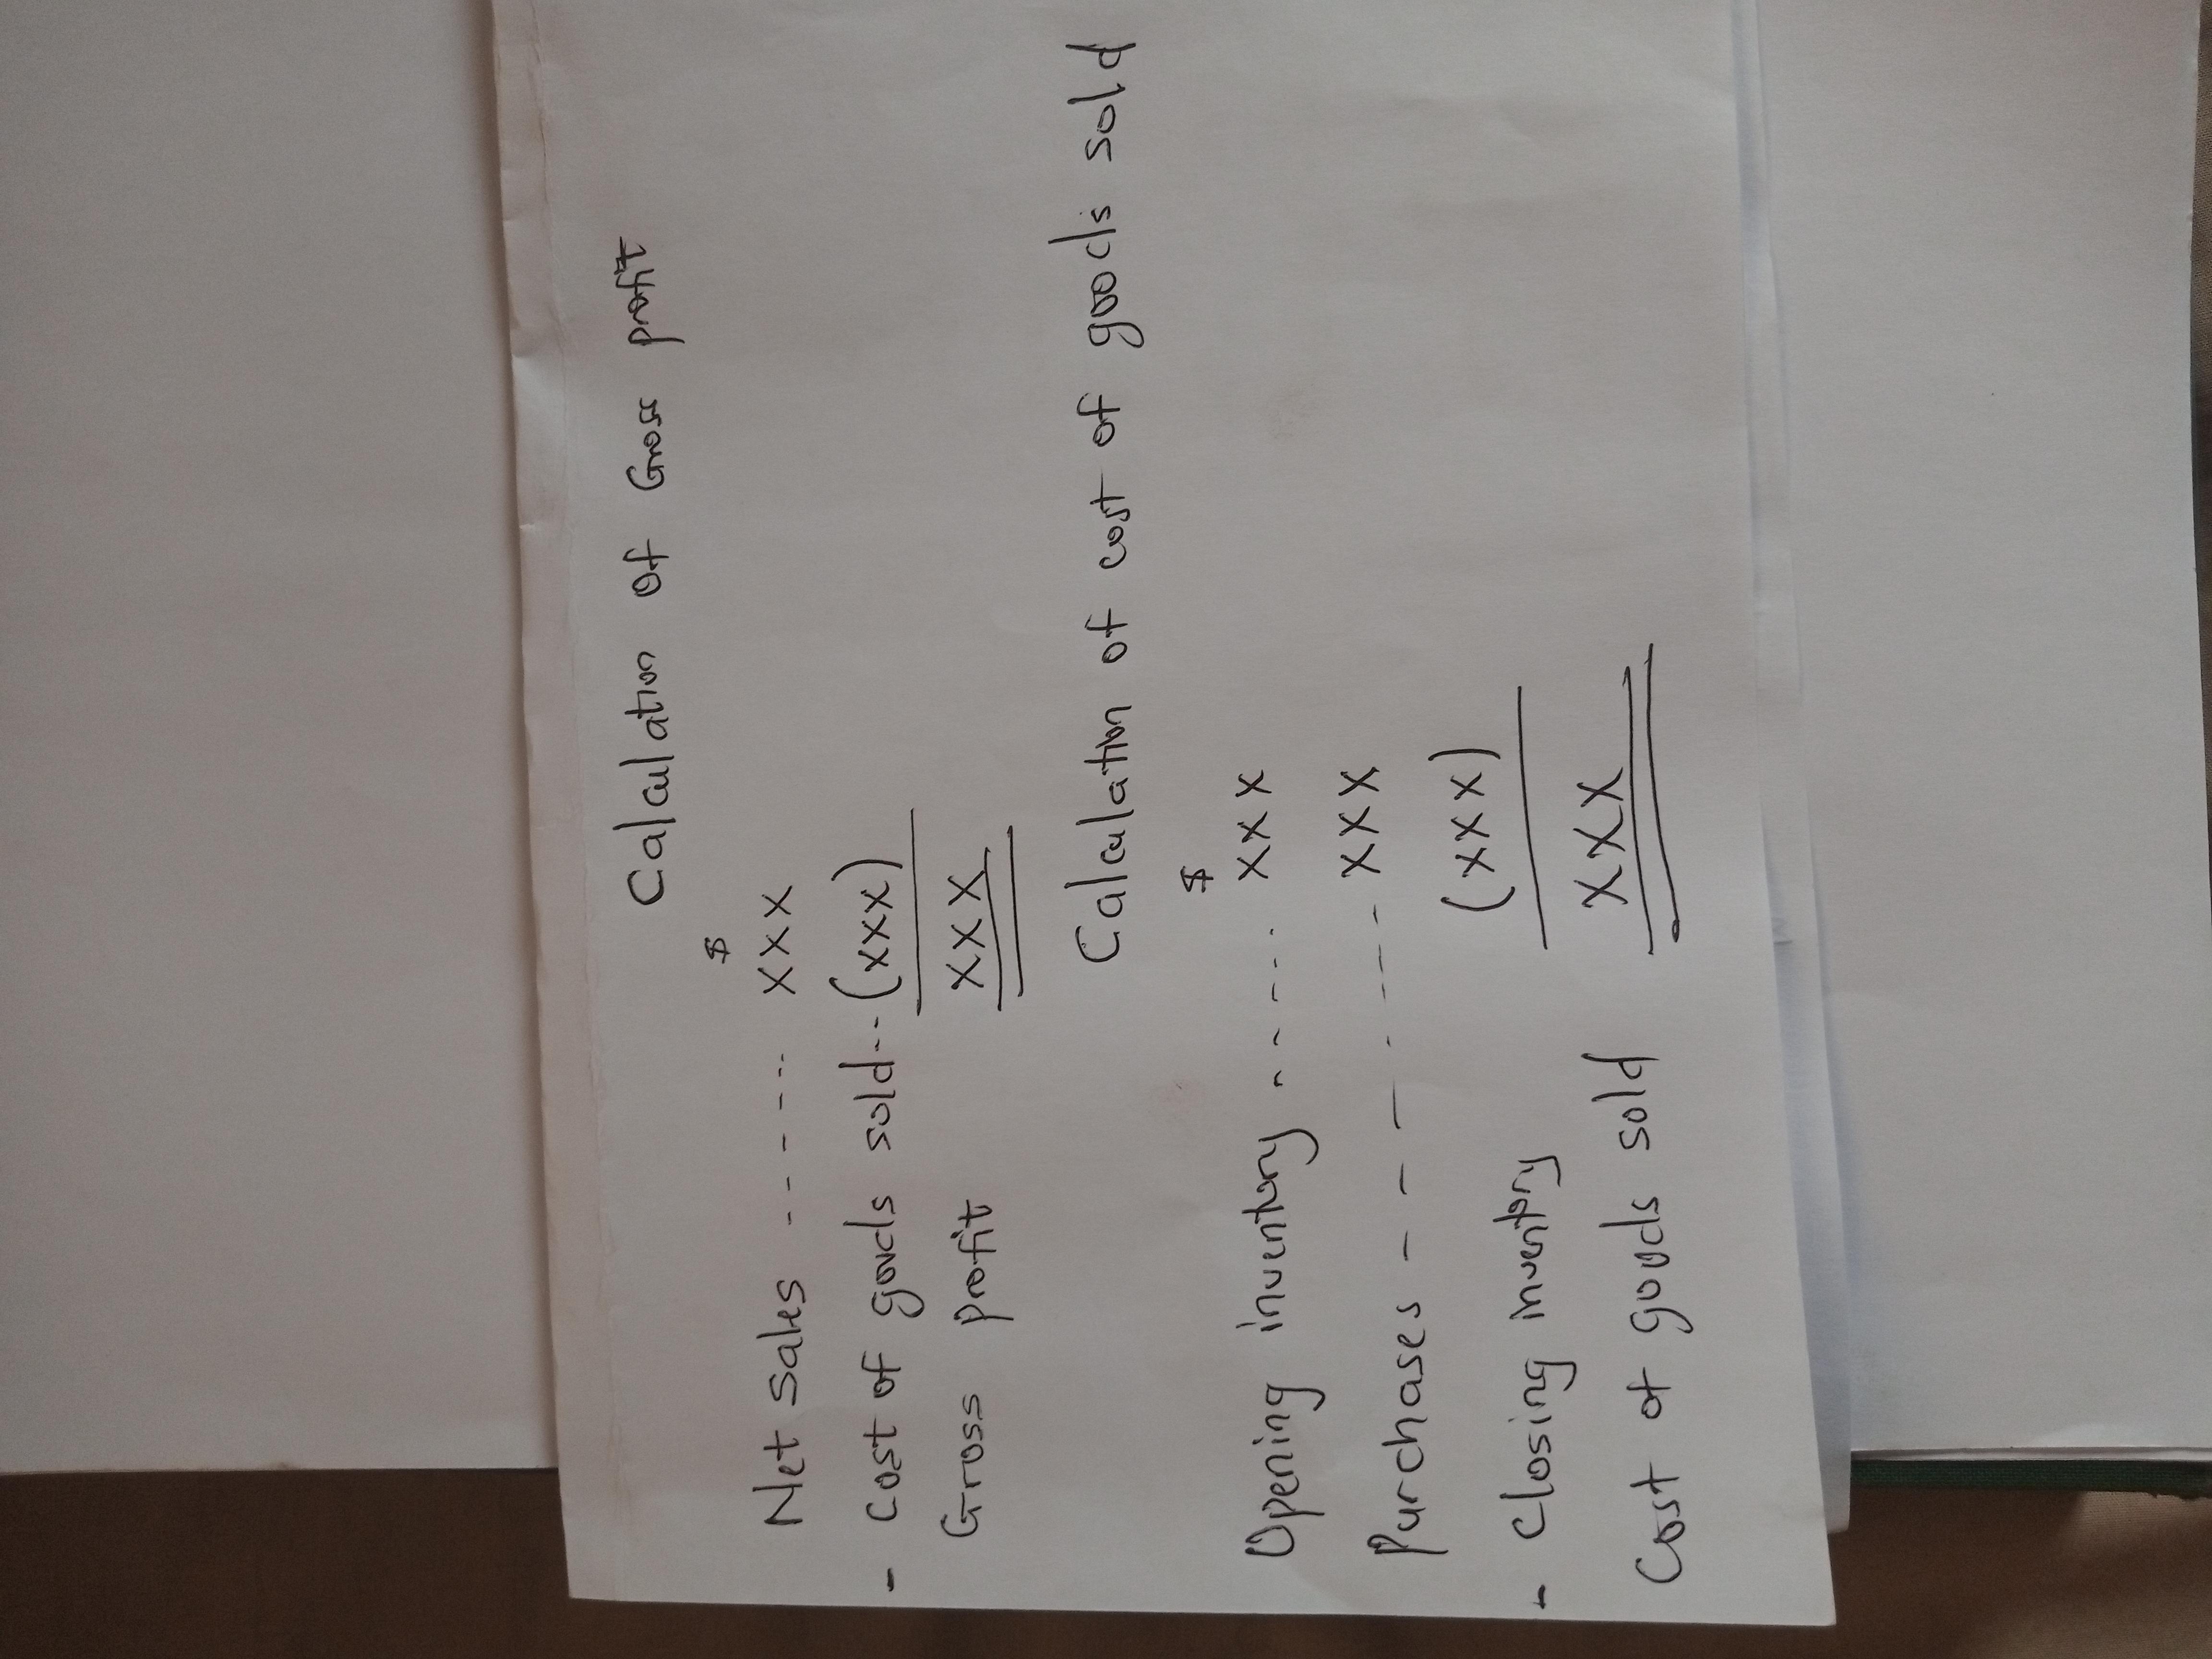 Calculation of Gross profit
$
Net Sales ------- xxx
- cost of goods sold--- (xxx)
Gross profit xxx
Calculation of cost of goods sold
$
Opening inventory ------ xxx
Purchases - - - ----- xxx
- closing inventory (xxx)
Cost of goods sold xxx